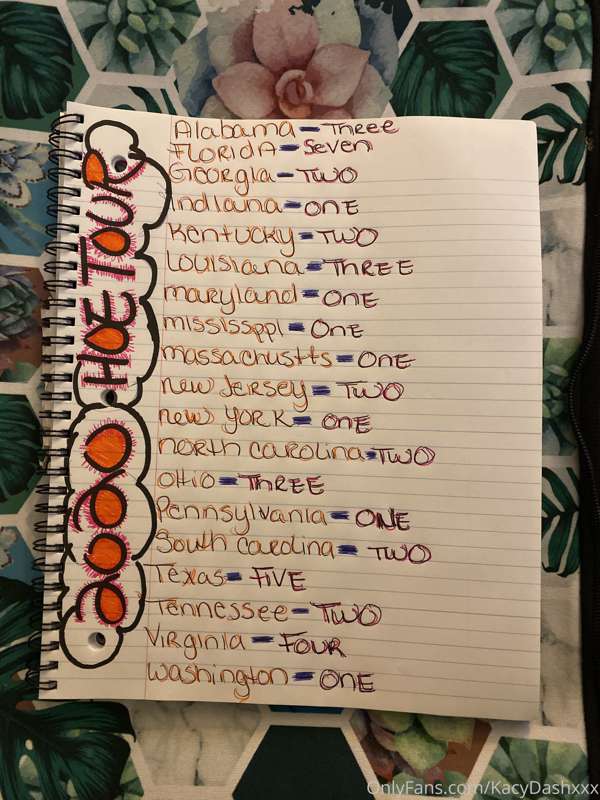 2020 HOE TOUR
Alabama - Three
FLORIDA - Seven
Georgia - TWO
Indiana - ONE
Kentucky - TWO
Louisiana - THREE
maryland - ONE
mississppi - One
massachustts - ONE
new Jersey - TWO
new YORK - ONE
north carolina - TWO
Ohio - THREE
Pennsylvania - ONE
South carolina - TWO
Texas - FIVE
Tennessee - TWO
Virginia - FOUR
washington - ONE
OnlyFans.com/KacyDashxxx